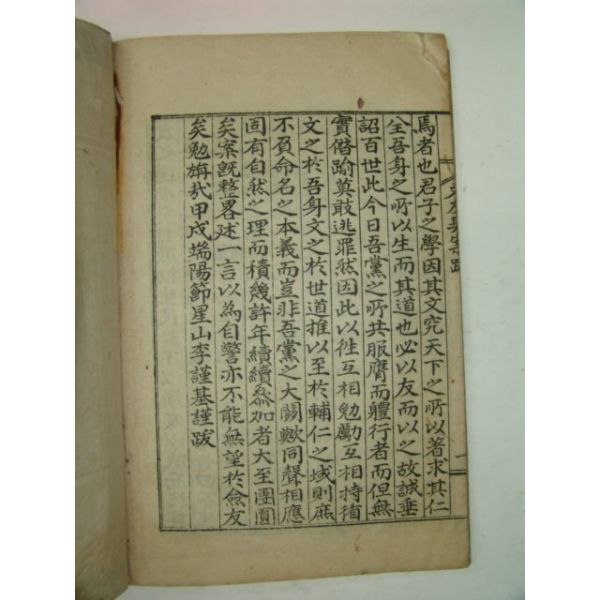 焉者也君子之學因其文究天下之所以著求其仁
全吾身之所以生而其道也必以友而以之故誠垂
詔百世此今日吾黨之所共服膺而軆行者而但無
實僭踰莫敢逃罪然因此以徃互相勉勵互相持循
文之於吾身文之於世道推以至於輔仁之域則庶
不負命名之本義而豈非吾黨之大關歟同聲相應
固有自然之理而積幾許年續續叅加者大至團圓
矣案旣整畧述一言以爲自警亦不能無望於僉友
矣勉旃㢤甲戌端陽節星山李謹基謹跋
案跋
一